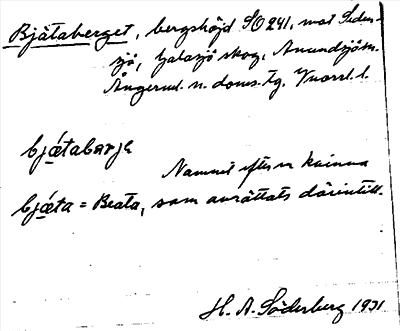 Bjätaberget, bergshöjd SO 241, mot Seden-
sjö, Galasjö skog, Anundsjö sn.
Ångerml. n. doms.-tg. Vnorrl. l.
bjǽtabarjə
Namnet efter en kvinna
bjǽta = Beata, som avrättats därintill.
H. A. Söderberg 1931